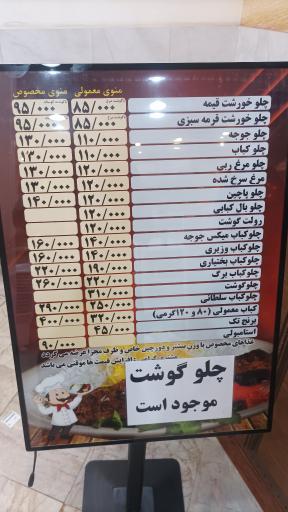 منوی معمولی منوی مخصوص
چلو خورشت قیمه ۸۵/۰۰۰ ۹۵/۰۰۰
چلو خورشت قرمه سبزی ۸۵/۰۰۰ ۹۵/۰۰۰
چلو جوجه ۱۱۰/۰۰۰ ۱۳۰/۰۰۰
چلو کباب ۱۱۰/۰۰۰ ۱۳۰/۰۰۰
چلو مرغ ربی ۱۲۰/۰۰۰ ۱۳۰/۰۰۰
مرغ سرخ شده ۱۲۰/۰۰۰ ۱۳۰/۰۰۰
چلو پاچین ۱۲۰/۰۰۰ ۱۴۰/۰۰۰
چلو بال کبابی ۱۲۰/۰۰۰
رولت گوشت ۱۲۰/۰۰۰
چلوکباب میکس جوجه ۱۴۰/۰۰۰ ۱۶۰/۰۰۰
چلوکباب وزیری ۱۴۰/۰۰۰ ۱۶۰/۰۰۰
چلوکباب بختیاری ۱۹۰/۰۰۰ ۲۲۰/۰۰۰
چلوکباب برگ ۲۲۰/۰۰۰ ۲۶۰/۰۰۰
چلوگوشت ۳۱۰/۰۰۰
چلوکباب سلطانی ۲۵۰/۰۰۰ ۲۹۰/۰۰۰
کباب معمولی (۸۰ و ۱۲۰گرمی) ۳۲۰/۰۰۰ ۴۰۰/۰۰۰
برنج تک ۴۵/۰۰۰
استامبولی ۹۰/۰۰۰
غذاهای مخصوص با وزن بیشتر و دورچین خاص و ظرف مجزا عرضه می گردد
افزایش قیمت ها موقتی می باشد
چلو گوشت
موجود است